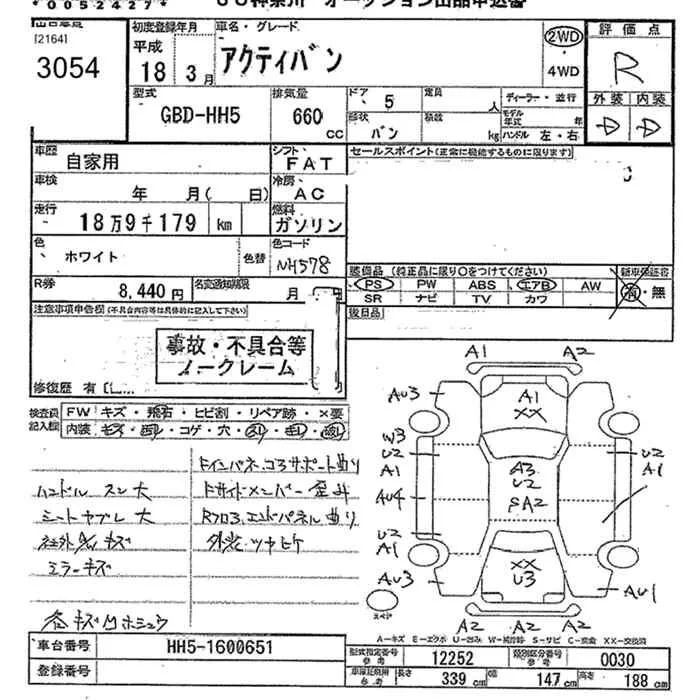 *00524274*
オークション出品申込書
[2164]
3054
初度登録年月
平成
18 3月
車名・グレード
アクティバン
2WD
4WD
評価点
R
外装 内装
D D
型式
GBD-HH5
排気量
660
cc
ドア
5
形状
バン
定員
人
積載
kg
ディーラー・並行
モデル年式 年
ハンドル 左・右
車歴
自家用
シフト
FAT
セールスポイント(正常に機能するものに限ります)
車検
年 月( 日)
冷房
AC
走行
18万9千179 km
燃料
ガソリン
色
ホワイト
色替
色コード
NH578
装備品 (純正品に限り○をつけてください)
新車保証書
PS PW ABS エアB AW
SR ナビ TV カワ
有・無
R券
8,440円
名変通知期限
月
後日品
注意事項申告欄(不具合内容等は具体的に記入して下さい)
事故・不具合等
ノークレーム
修復歴 有
検査員記入欄
FW キズ・飛石・ヒビ割・リペア跡・×要
内装
コゲ・穴
ハンドル スレ大
シートヤブレ 大
社外
キズ
ミラーキズ
各キズ
ホシュウ
Fインパネ、コアサポート曲り
Fサイドメンバー 歪み
Rフロア、エンドパネル曲り
外装
A1 A2
AU3
A1
XX
W3
U2
A1
AU4
U2
A1
AU3
A3
U2
SA2
U2
A1
XX
U3
AU1
A2 A2 A2
スペア
A-キズ E-エクボ U-凹み W-補修跡 S-サビ C-腐食 XX-交換済
車台番号
HH5-1600651
登録番号
型式指定番号
参考
12252
類別区分番号
参考
0030
長さ 339 cm
幅 147 cm
高さ 188 cm